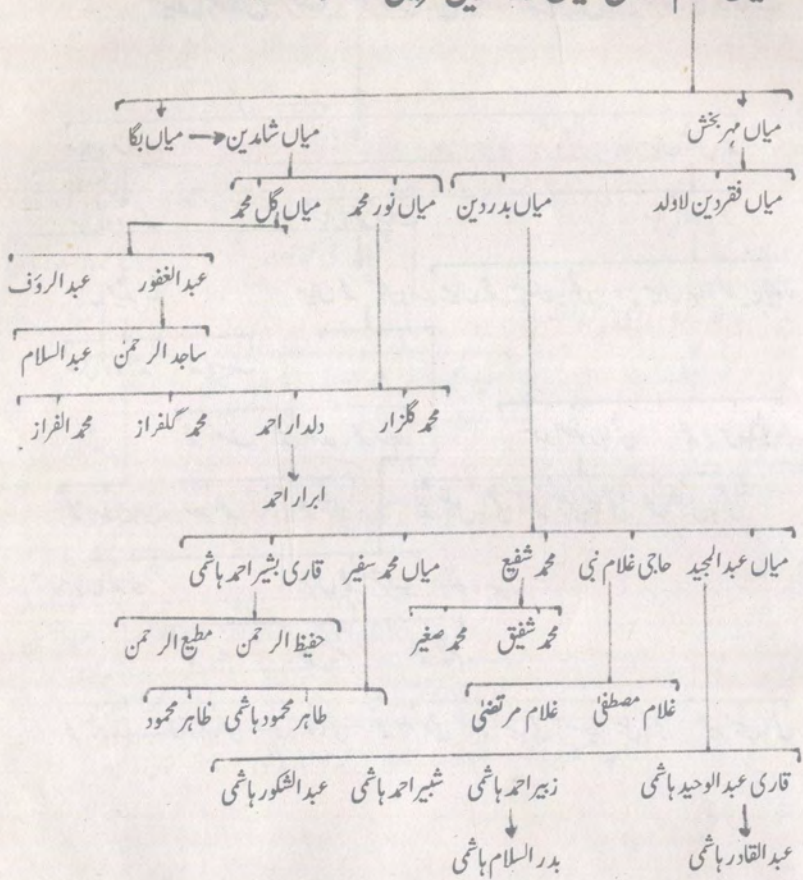 میاں مہر بخش میاں شامدین میاں بگا
میاں فقردین لاولد میاں بدردین میاں نور محمد میاں گل محمد
عبدالغفور عبدالرؤف
ساجد الرحمن عبدالسلام
محمد گلزار دلدار احمد محمد گلفراز محمد الفراز
ابرار احمد
میاں عبدالمجید حاجی غلام نبی محمد شفیع میاں محمد سفیر قاری بشیر احمد ہاشمی
محمد شفیق محمد صغیر حفیظ الرحمن مطیع الرحمن
غلام مصطفیٰ غلام مرتضیٰ طاہر محمود ہاشمی ظاہر محمود
قاری عبدالوحید ہاشمی زبیر احمد ہاشمی شبیر احمد ہاشمی عبدالشکور ہاشمی
عبدالقادر ہاشمی بدرالسلام ہاشمی